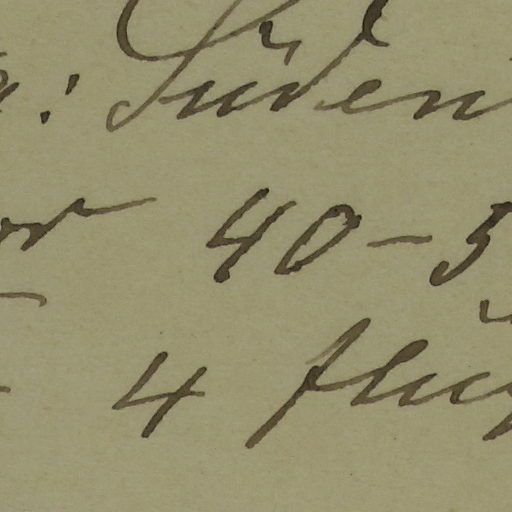 : Süden
or 40-5
4 flug